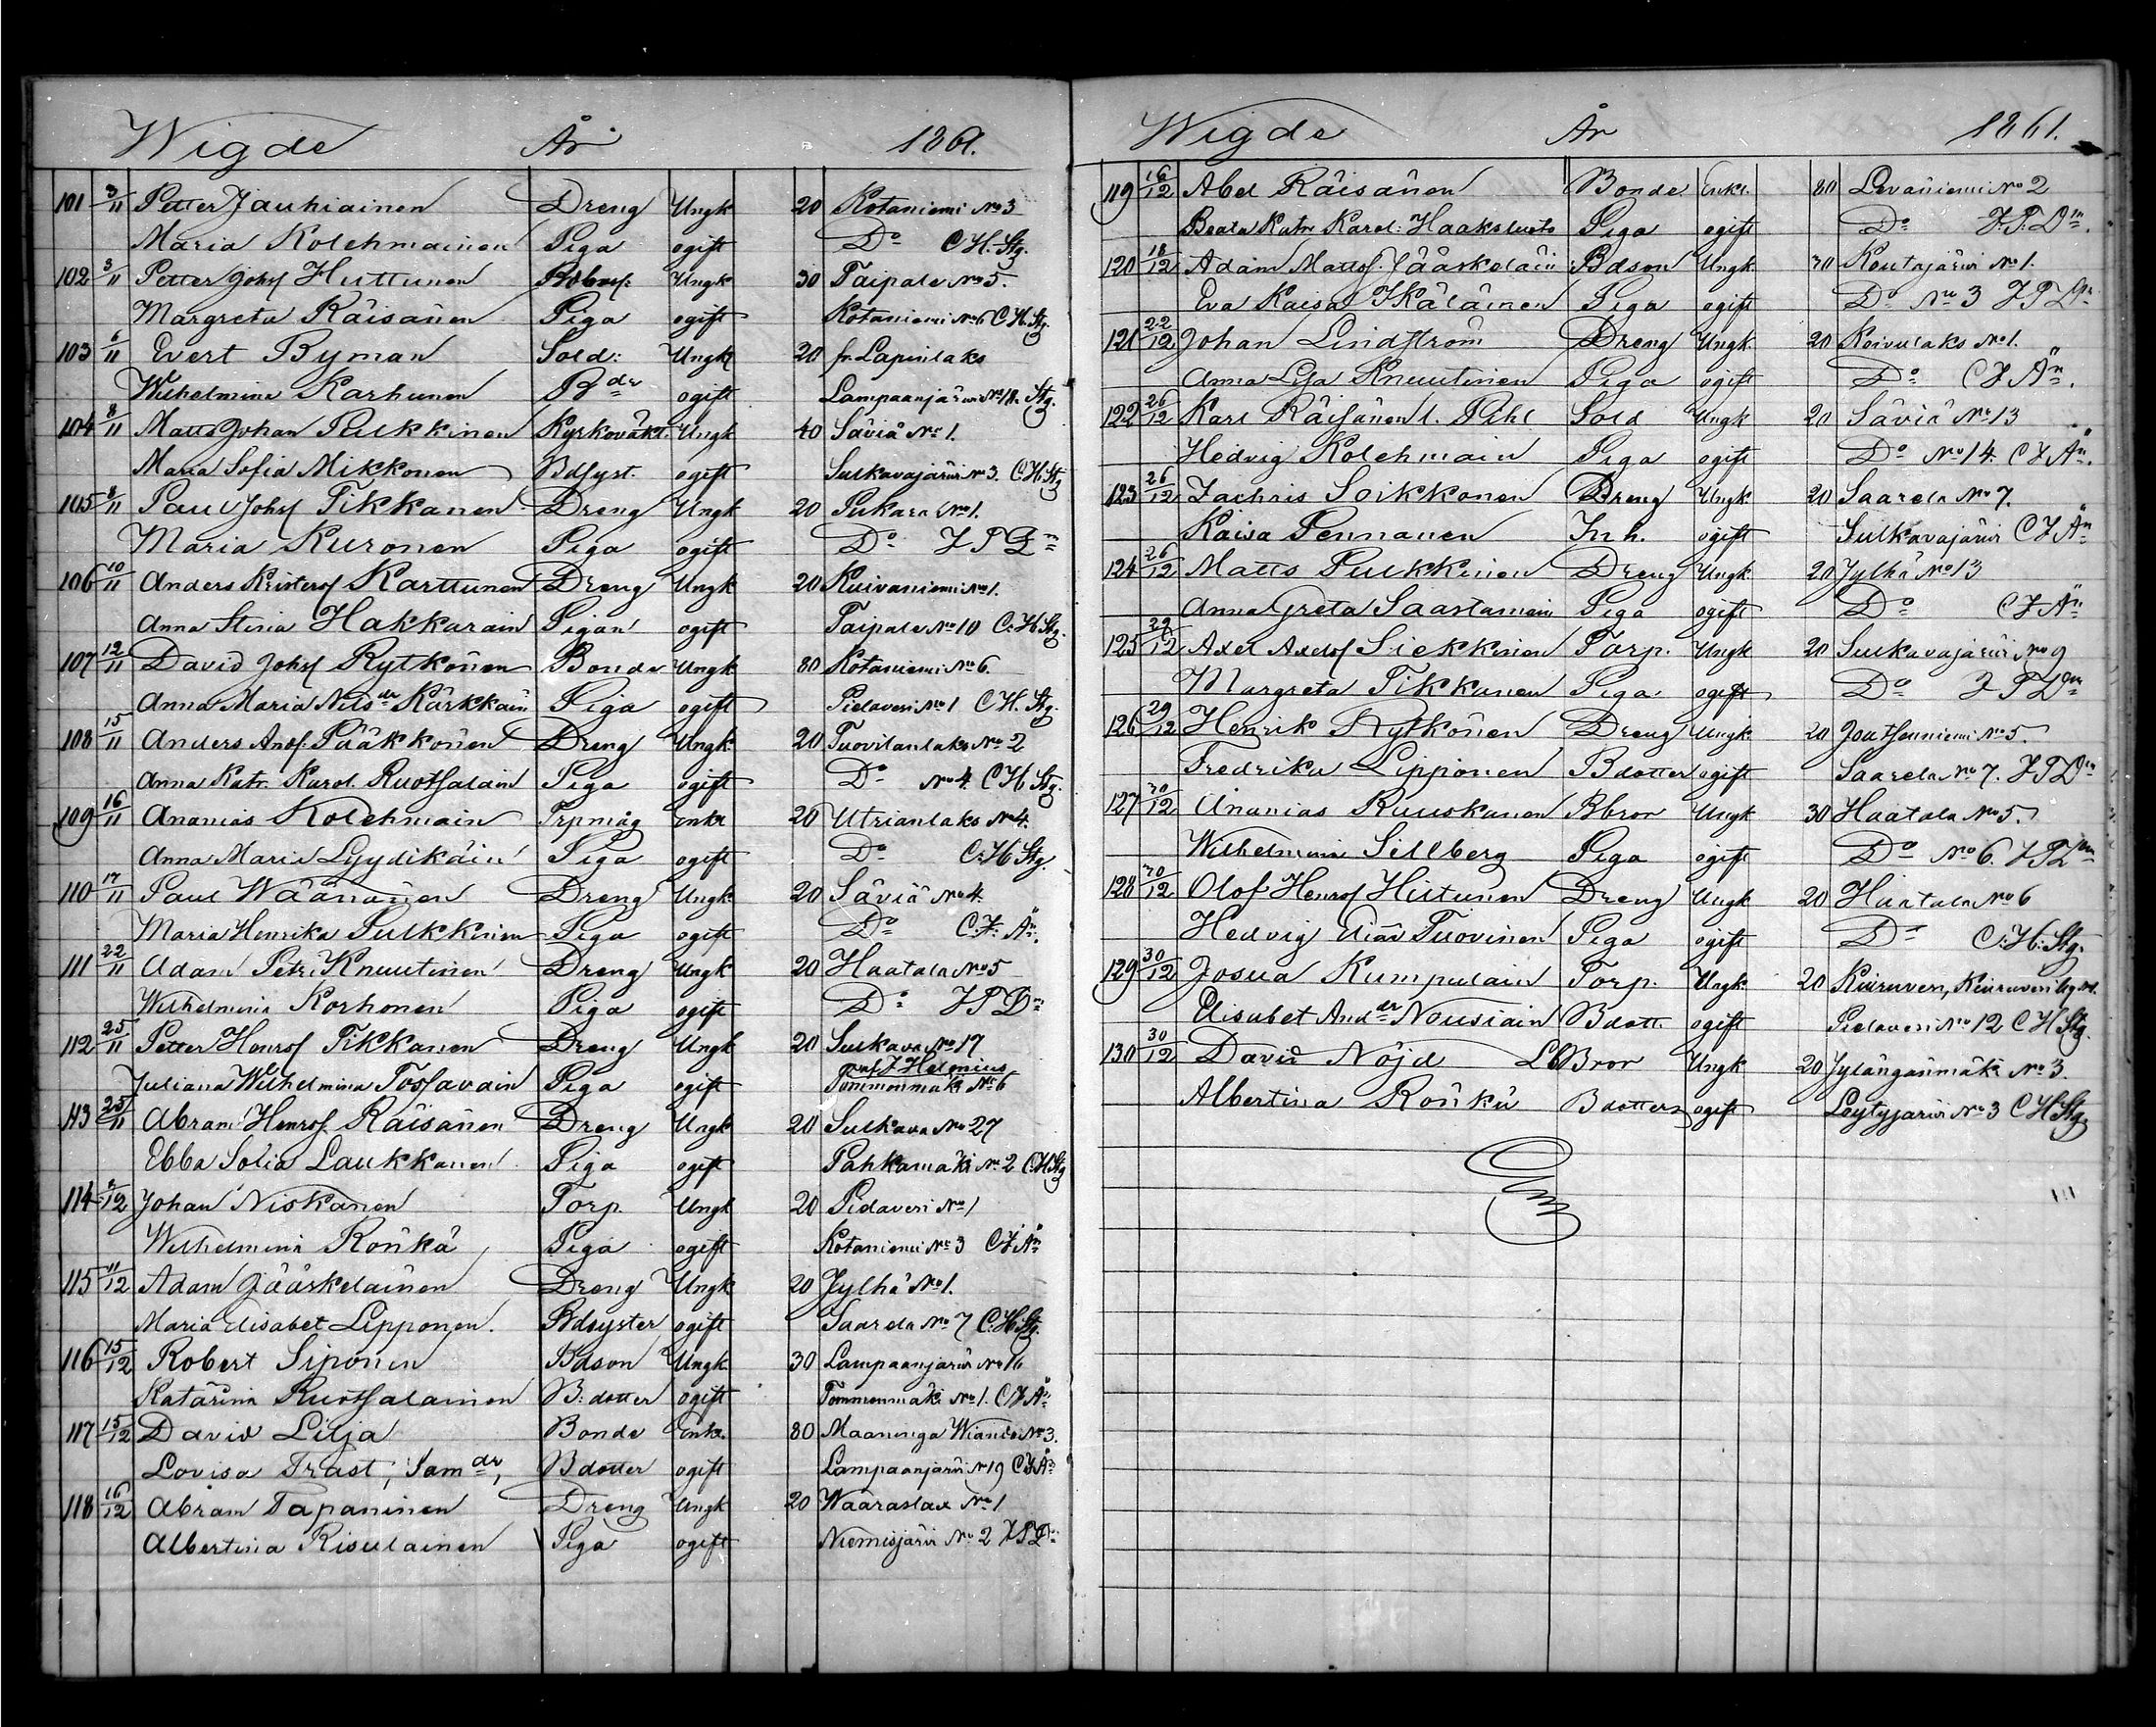 Wigde År 1861.
101 3/11 Petter Jauhiainen Dreng Ungk 20 Kotaniemi No 3
Maria Kolehmainen Piga ogift Do C.H. Stg.
102 3/11 Petter Johsf Huttunen Ungk 30 Taipale No 5.
Margreta Räisänen Piga ogift Kotaniemi No 6 C.H. Stg.
103 6/11 Evert Byman Sold: Ungk 20 fr. Lapinlaks
Wilhelmina Karhunen Bdr ogift Lampaanjärwi No 18 Stg.
104 8/11 Matts Johan Pulkkinen Kyrkoväkt. Ungk 40 Säviä No 1.
Maria Sofia Mikkonen Bdsyst. ogift Sulkavajärwi No 3. C.H. Stg
105 8/11 Paul Johsf Tikkanen Dreng Ungk 20 Pukara No 1.
Maria Kuronen Piga ogift Do J P Dn
106 10/11 Anders Kristersf Karttunen Dreng Ungk 20 Kuivaniemi No 1.
Anna Stina Hakkarain Pigan ogift Taipale No 10 C.H. Stg.
107 12/11 David Johsf Rytkönen Bonde Ungk 80 Kotaniemi No 6.
Anna Maria Nilsdr Kärkkäin Piga ogift Pielavesi No 1 C.H. Stg.
108 15/11 Anders Andf. Pääkkönen Dreng Ungk 20 Tuovilanlaks No 2
Anna Katr. Karol. Ruotsalain Piga ogift Do No 4. C H Stg.
109 16/11 Ananias Kolehmain Trpmåg Enkl 20 Utrianlaks No 4.
Anna Maria Lyydikäin Piga ogift Do C.H. Stg.
110 17/11 Paul Wäänänen Dreng Ungk 20 Säviä No 4
Maria Henrika Pulkkinen Piga ogift Do C.J. Än.
111 22/11 Adam Petr. Knuutinen Dreng Ungk 20 Haatala No 5
Wilhelmina Korhonen Piga ogift Do J P Dn
112 25/11 Petter Henrsf Tikkanen Dreng Ungk 20 Sulkava No 17
Juliana Wilhelmina Tossavain Piga ogift Tommonmäki No 6 af J. Helenius
113 25/11 Abram Henrsf. Räisänen Dreng Ungk 20 Sulkava No 27
Ebba Sofia Laukkanen Piga ogift Pahkamäki No 2 C.H. Stg
114 2/12 Johan Niskanen Torp. Ungk 20 Pielavesi No 1
Wilhelmina Rönkä Piga ogift Kotaniemi No 3 C J Än
115 11/12 Adam Jääskeläinen Dreng Ungk 20 Jylhä No 1.
Maria Elisabet Lipponen. Bdsyster ogift Saarela No 7 C.H. Stg.
116 15/12 Robert Siponen Bdson Ungk 30 Lampaanjärwi No 16
Katarina Ruotsalainen B:dotter ogift Tommonmäki No 1. C J Än
117 15/12 David Lilja Bonde Enkl. 80 Maaninga Wianda No 3.
Lovisa Trast, Samdr, Bdotter ogift Lampaanjärwi No 19 C J Än
118 16/12 Abram Tapaninen Dreng Ungk 20 Waaraslax No 1
Albertina Risulainen Piga ogift Niemisjärwi No 2 J P Dn
Wigde År 1861.
119 16/12 Abel Räisänen Bonde Enkl. 80 Leväniemi No 2
Beata Katr. Karol: Haaksluoto Piga ogift Do J. P. Dn.
120 18/12 Adam Mattsf. Jääskeläin Bdson Ungk. 30 Koutajärwi No 1.
Eva Kaisa Ikäläinen Piga ogift Do No 3 J P Dn
121 22/12 Johan Lindström Dreng Ungk. 20 Koivulaks No 1.
Anna Lisa Knuutinen Piga ogift Do C J Än.
122 26/12 Karl Räisänen l. Pihl Sold Ungk 20 Säviä No 13
Hedvig Kolehmain Piga ogift Do No 14. C J Än.
123 26/12 Zachris Soikkonen Dreng Ungk 20 Saarela No 7.
Kaisa Pennanen Inh. ogift Sulkavajärwi C J Än
124 26/12 Matts Pulkkinen Dreng Ungk 20 Jylhä No 13
Anna Greta Saastamoin Piga ogift Do C J Än
125 29/12 Axel Axelsf Siekkinen Torp. Ungk 20 Sulkavajärwi No 9
Margreta Tikkanen Piga ogift Do J P Dn
126 29/12 Henrik Rytkönen Dreng Ungk 20 Joutsenniemi No 5.
Fredrika Lipponen Bdotter ogift Saarela No 7. J P Dn
127 30/12 Ananias Ruuskanen Bbror Ungk 30 Haatala No 5.
Wilhelmina Sillberg Piga ogift Do No 6. J P Dn
128 30/12 Olof Henrsf Hiltunen Dreng Ungk 20 Haatala No 6
Hedvig Tuovinen Piga ogift Do C.H. Stg.
129 30/12 Josua Kumpulain Torp. Ungk 20 Kiuruvesi, Kiuruvesi
Elisabet Anddr Nousiain Bdott. ogift Pielavesi No 12 C H Stg.
130 30/12 David Nöjd Bror Ungk 20 Jylängänmäki No 3.
Albertina Rönkä Bdotter ogift Leytyjärwi No 3 C H Stg